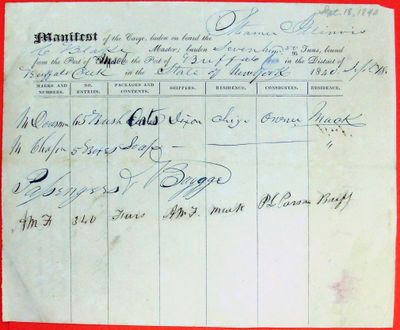 Sept. 18, 1840
Manifest of the Cargo, laden on board the Steamer Illinois
C Blake Master; burden Seven hun Tons, bound
from the Port of Mack to the Port of Buffalo in the District of
Buffalo Creek in the State of New York 1840. Sept 18
MARKS AND NUMBERS. NO. ENTRIES. PACKAGES AND CONTENTS. SHIPPERS. RESIDENCE. CONSIGNEES. RESIDENCE.
65 Bush Oats Dixon Owner Mack
Mr Chapin 5 Boxes Soap — "
Passengers & Bagge
A M F 340 Furs A. M. F. mack Buff